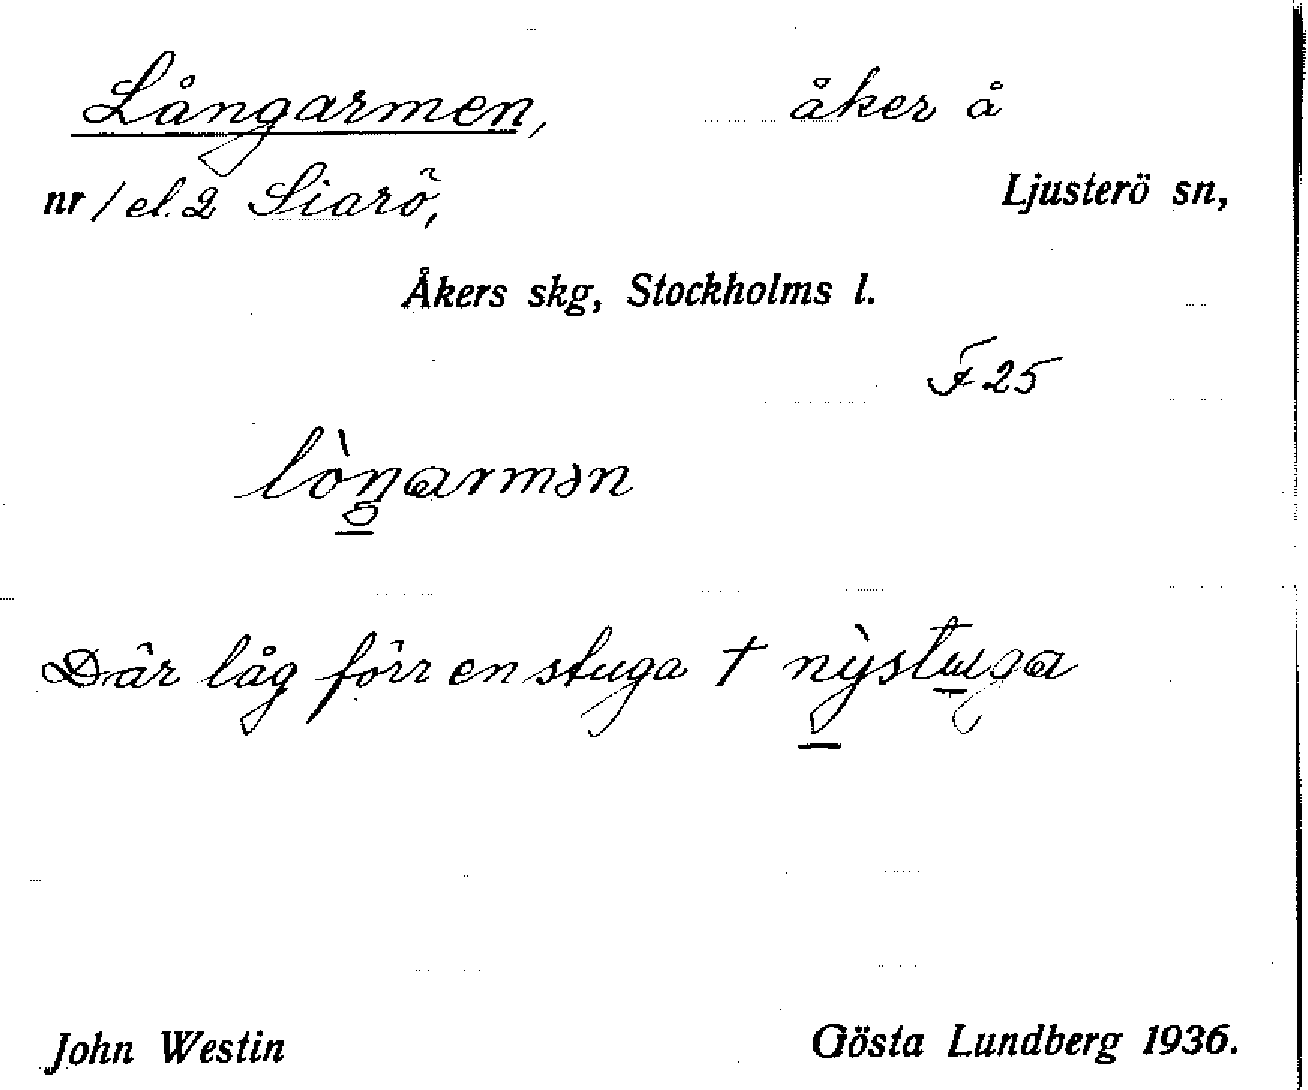 Långarmen, åker å
nr 1 el. 2 Siarö, Ljusterö sn,
Åkers skg, Stockholms l.
F 25
lòŋarmən
Där låg förr en stuga † nỳstuga
John Westin Gösta Lundberg 1936.